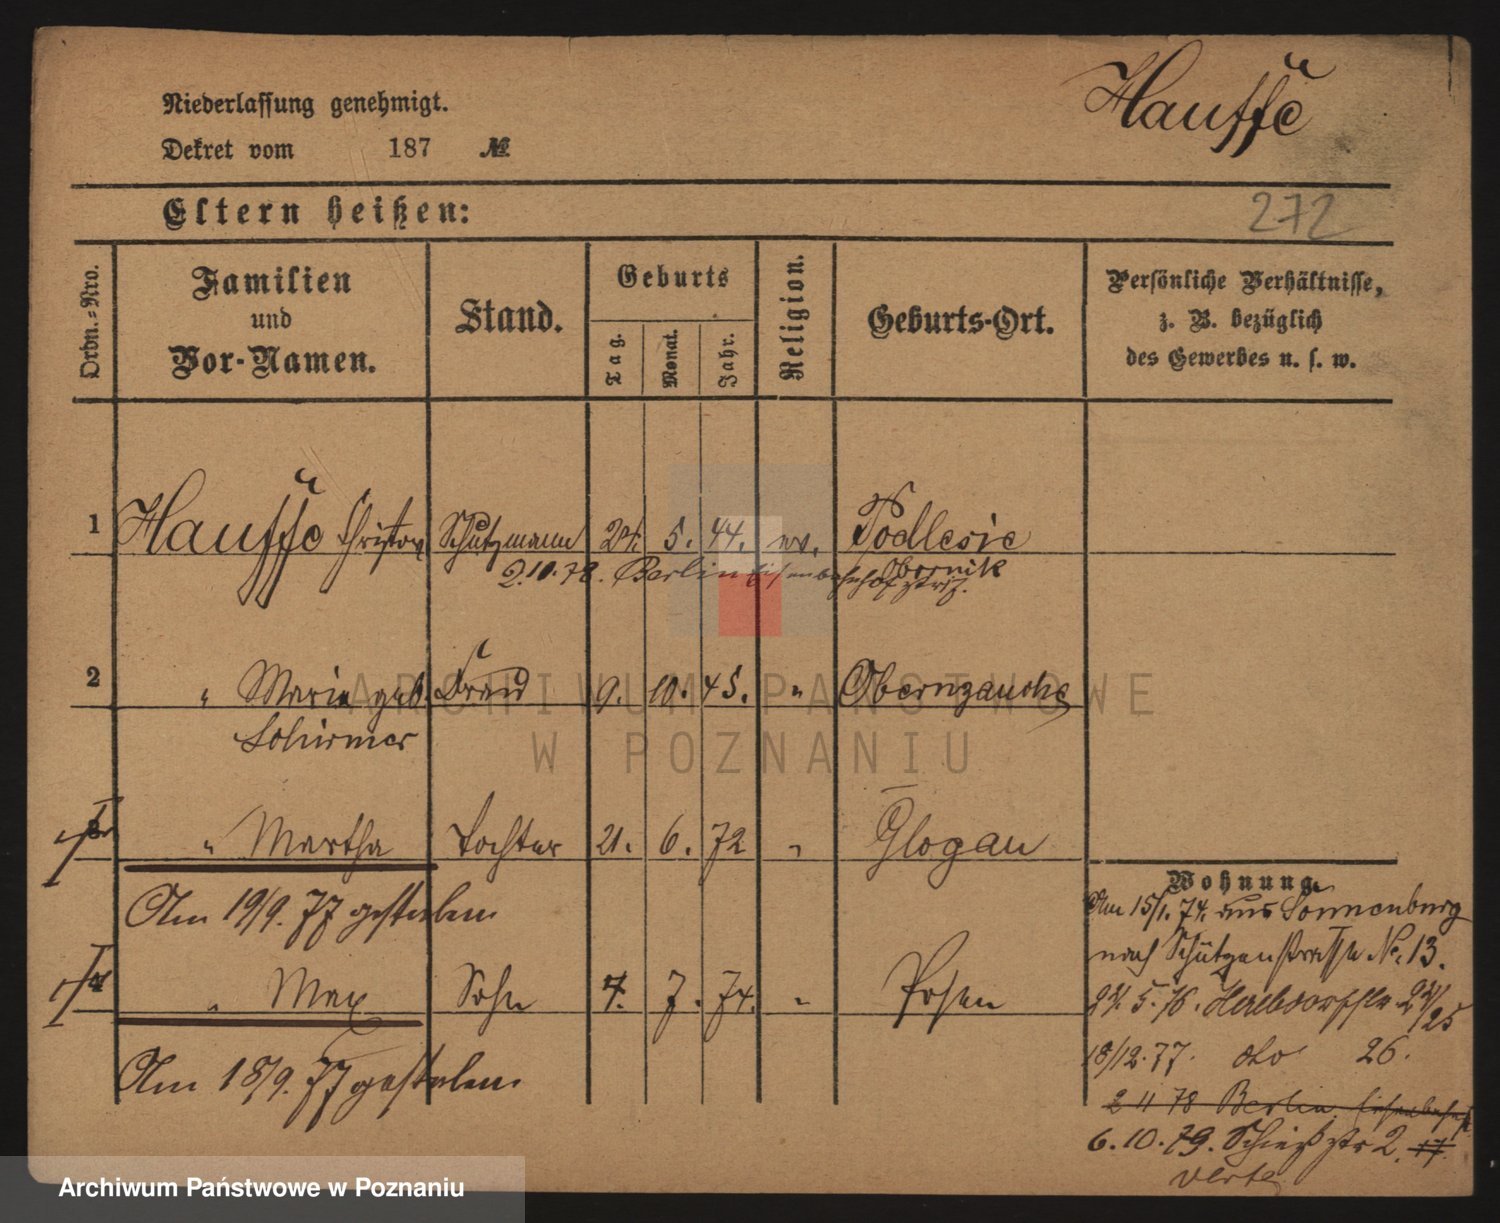 Hauffe
Niederlassung genehmigt.
Dekret vom 187 №
Eltern heißen:
272
Ordn.-Nro.
Familien und Vor-Namen.
Stand.
Geburts
Tag.
Monat.
Jahr.
Religion.
Geburts-Ort.
Persönliche Verhältnisse,
z. B. bezüglich
des Gewerbes u. s. w.
1 Hauffe Schutzmann 24. 5. 44. ev. Podlesie
Obornik
2.10.78. Berlin Eisenbahnhof
2 " Maria geb. Frau 9. 10. 45. " Obernzauche
Schirmer
3 " Martha Tochter 21. 6. 72 " Glogau
Am 19/9. 77 gestorben
4 " Max Sohn 7. 7. 74. " Posen
Am 18/9. 77 gestorben
Wohnung.
Am 15/1. 74. aus Sonnenburg
nach Schützenstrasse No. 13.
24. 5. 76. 24/25
18/12. 77. dto 26.
2 11 78 Berlin Eisenbahnh
6. 10. 79. Schießstr 2. 17.
verte
ARCHIWUM PAŃSTWOWE
W POZNANIU
Archiwum Państwowe w Poznaniu